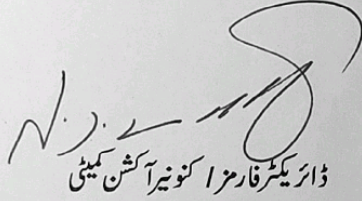 ڈائریکٹر فارمز / کنونیر آکشن کمیٹی